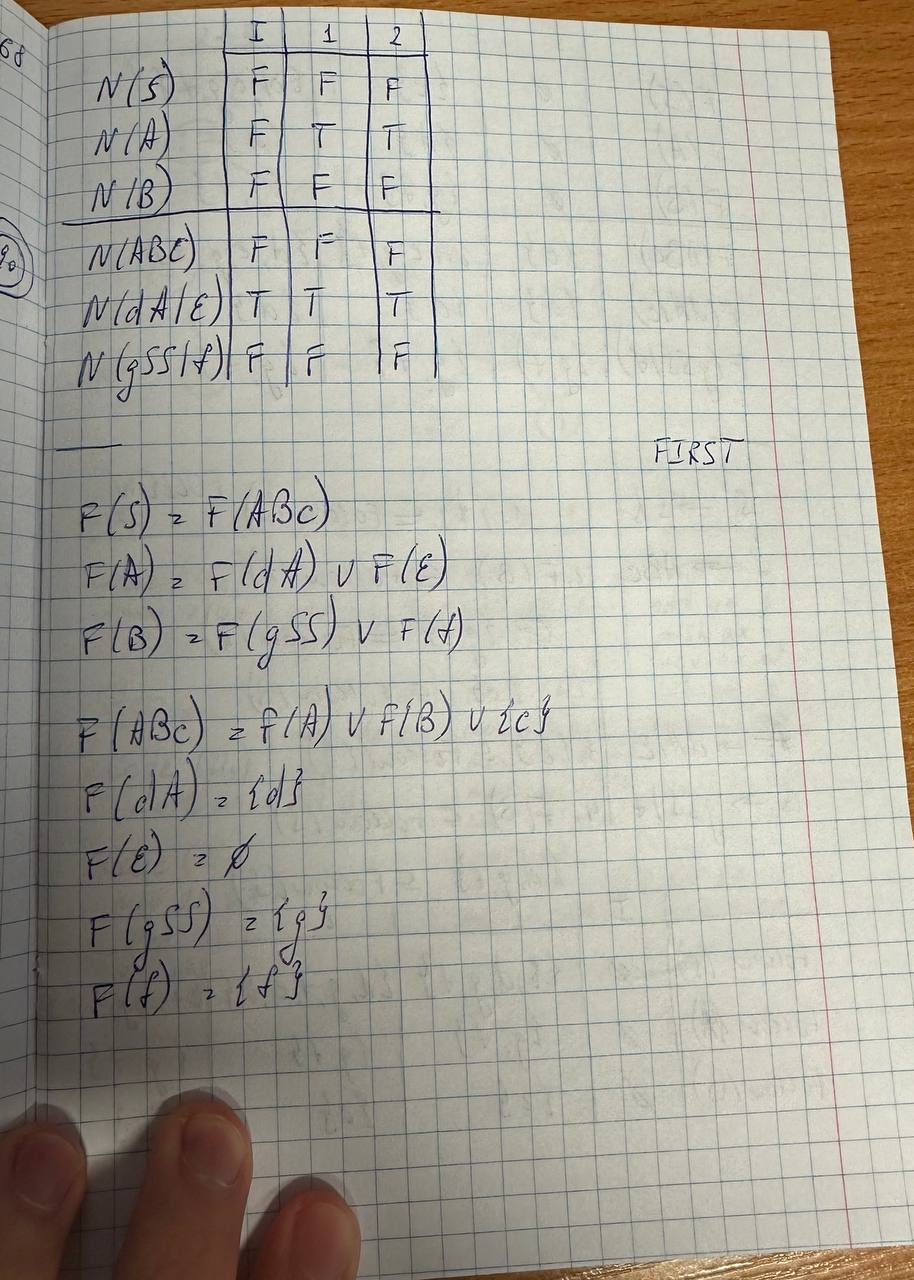 68
I 1 2
N(S) F F F
N(A) F T T
N(B) F F F
N(ABC) F F F
N(dA|ε) T T T
N(gSS|f) F F F
FIRST
F(S) = F(ABc)
F(A) = F(dA) ∪ F(ε)
F(B) = F(gSS) ∪ F(f)
F(ABc) = F(A) ∪ F(B) ∪ {c}
F(dA) = {d}
F(ε) = ∅
F(gSS) = {g}
F(f) = {f}